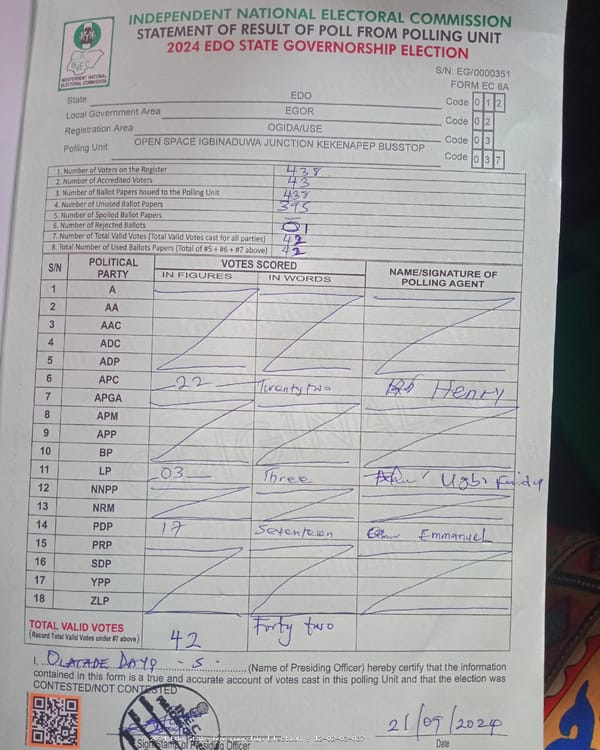 INDEPENDENT NATIONAL ELECTORAL COMMISSION
STATEMENT OF RESULT OF POLL FROM POLLING UNIT
2024 EDO STATE GOVERNORSHIP ELECTION
INEC
INDEPENDENT NATIONAL
ELECTORAL COMMISSION
S/N: EG/0000351
FORM EC 8A
State EDO Code 0 1 2
Local Government Area EGOR Code 0 2
Registration Area OGIDA/USE Code 0 3
Polling Unit OPEN SPACE IGBINADUWA JUNCTION KEKENAPEP BUSSTOP Code 0 3 7
1. Number of Voters on the Register 438
2. Number of Accredited Voters 43
3. Number of Ballot Papers Issued to the Polling Unit 438
4. Number of Unused Ballot Papers 395
5. Number of Spoiled Ballot Papers —
6. Number of Rejected Ballots 01
7. Number of Total Valid Votes (Total Valid Votes cast for all parties) 42
8. Total Number of Used Ballots Papers (Total of #5 + #6 + #7 above) 42
S/N POLITICAL PARTY VOTES SCORED NAME/SIGNATURE OF POLLING AGENT
IN FIGURES IN WORDS
1 A
2 AA
3 AAC
4 ADC
5 ADP
6 APC 22 Twentytwo Henry
7 APGA
8 APM
9 APP
10 BP
11 LP 03 Three Ugbi
12 NNPP
13 NRM
14 PDP 17 Seventeen Emmanuel
15 PRP
16 SDP
17 YPP
18 ZLP
TOTAL VALID VOTES
(Record Total Valid Votes under #7 above) 42 Forty two
I, OLALADE DAYO - S - (Name of Presiding Officer) hereby certify that the information
contained in this form is a true and accurate account of votes cast in this polling Unit and that the election was
CONTESTED/NOT CONTESTED
21/09/2024
Sign/Stamp of Presiding Officer Date
2024 Edo State Governorship Election - 12-02-03-037